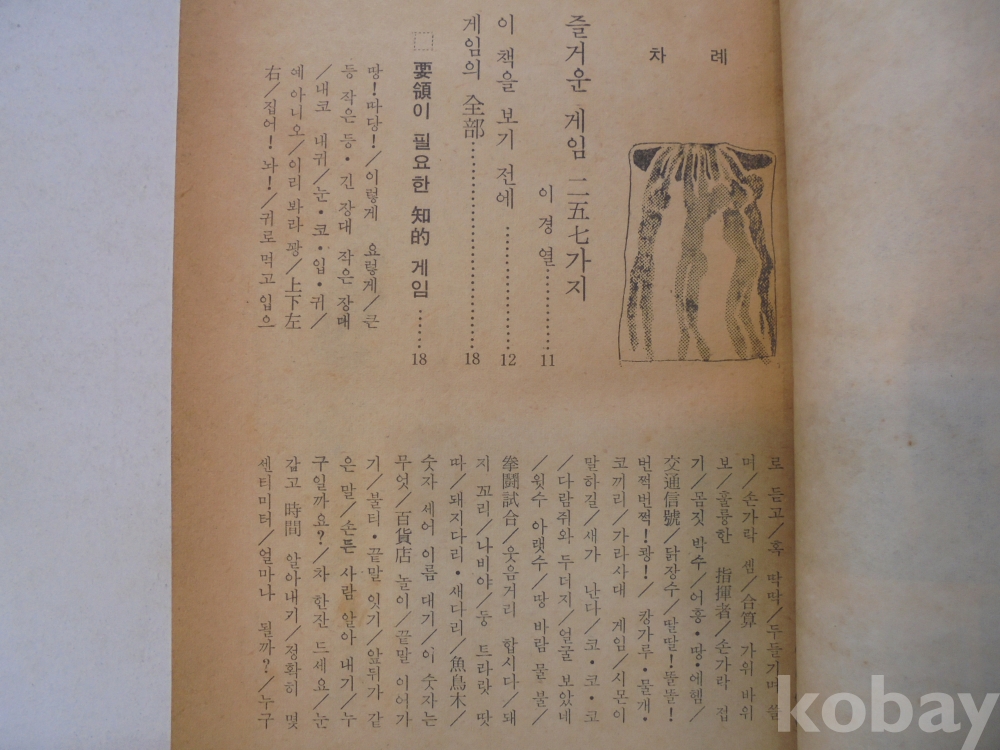 차 례
즐거운 게임 二五七가지
이 경 열 ………… 11
이 책을 보기 전에 ………… 12
게임의 全部 ………… 18
□ 要領이 필요한 知的 게임 …… 18
땅!따당!/이렇게 요렇게/큰
등 작은 등·긴 장대 작은 장대
/내코 내귀/눈·코·입·귀/
예 아니오/이리 봐라 꽝/上下左
右/집어! 놔!/귀로 먹고 입으
로 듣고/혹 딱딱/두들기며 쓸
며/손가락 셈/合算 가위 바위
보/훌륭한 指揮者/손가락 접
기/몸짓 박수/어흥·땅·에헴/
交通信號/닭장수/딸딸!뚤뚤!
번쩍번쩍!쾅!/ 캉가루·물개·
코끼리/가라사대 게임/시몬이
말하길/새가 난다/코·코·코
/다람쥐와 두더지/얼굴 보았네
/윗수 아랫수/땅 바람 물 불/
拳鬪試合/웃음거리 합시다/돼
지 꼬리/나비야/둥 트라랏 땃
따/돼지다리·새다리/魚鳥木/
숫자 세어 이름 대기/이 숫자는
무엇/百貨店 놀이/끝말 이어가
기/불티·끝말 잇기/앞뒤가 같
은 말/손든 사람 알아 내기/누
구일까요?/차 한잔 드세요/눈
감고 時間 알아내기/정확히 몇
센티미터/얼마나 될까?/누구
kobay